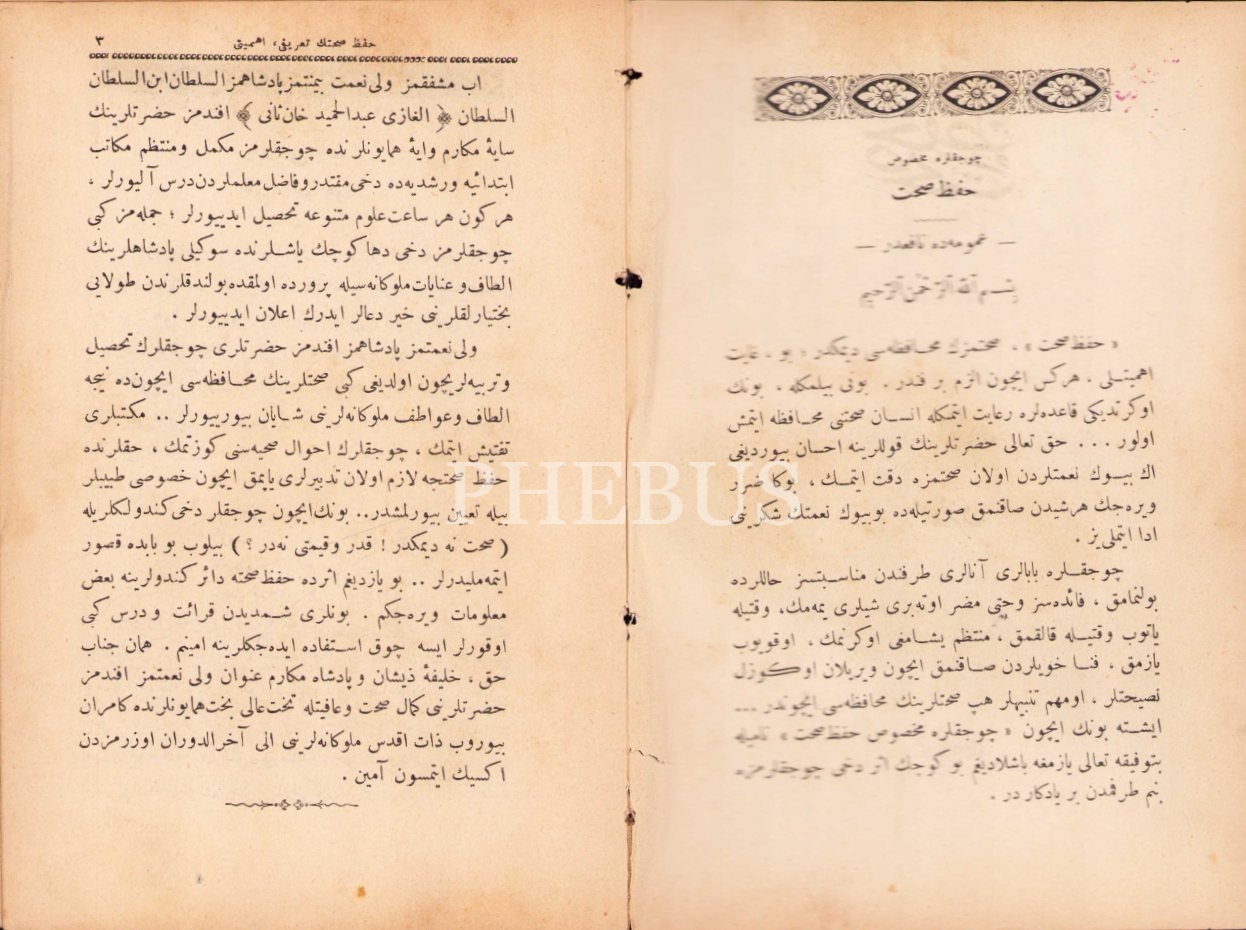 چوجقلره مخصوص
حفظ صحت
— عمومه‌ده نافعدر —
بسم الله الرحمن الرحیم
« حفظ صحت » ، صحتمزك محافظه‌سی دیمكدر ؛ بو ، غایت
اهمیتـلی ، هركس ایچون الزم بر فندر . بونی بیلمكله ، بونك
اوكرتدیكی قاعده‌لره رعایت ایتمكله انسـان صحتنی محـافظه ایتمش
اولور ... حق تعالی حضرتلرینك قوللرینه احسان بیوردیغی
اك بیـوك نعمتلردن اولان صحتمزه دقت ایتمـك ، بوكا ضرر
ویره‌جك هرشیدن صاقنمق صورتیله‌ده بوبیوك نعمتك شكرینی
ادا ایتملی‌یز .
چوجقـلره بابالری آنالری طرفندن مناسـبتسز حاللرده
بولنمامق ، فائده‌سز وحتی مضر اوته‌بری شیلری یمه‌مك، وقتیله
یاتوب وقتیـله قالقمق ، منتظم یشامغی اوكرنمك ، اوقویوب
یازمق ، فنـا خویلردن صـاقنمق ایچون ویریلان اوكـوزل
نصیحتلر ، اومهم تنبیهلر هپ صحتلرینك محافظه‌سی ایچوندر ...
ایشـته بونك ایچون « چوجقلره مخصوص حفظ صحت » نامیله
بتوفیقه تعالی یازمغه باشلادیغم بو كوچك اثر دخی چوجقلرمزه
بنم طرفمدن بر یادكار در .
حفظ صحتك تعریفی، اهمیتی
٣
اب مشفقمز ولی‌نعمت بیمنتمز پادشاهمز السلطان ابن السلطان
السلطان ﴿ الغازی عبدالحمید خان ثانی ﴾ افندمز حضرتلرینك
سایهٔ مكارم وایهٔ همایونلرنده چوجقلرمز مكمل ومنتظم مكاتب
ابتدائیه ورشدیه‌ده دخی مقتدر وفاضل معلملردن درس آلیورلر ،
هركون هر ساعت علوم متنوعه تحصیل ایدییورلر ؛ جمله‌مز كبی
چوجقلرمز دخی دها كوچك یاشـلرنده سوكیلی پادشاهلرینك
الطاف وعنایات ملوكانه‌سیله پرورده اولمقده بولندقلرندن طولایی
بختیارلقلرینی خیر دعالر ایدرك اعلان ایدییورلر .
ولی‌نعمتمز پادشاهمز افندمز حضرتلری چوجقلرك تحصیل
وتربیه‌لریچون اولدیغی كبی صحتلرینك محـافظه‌سی ایچون‌ده نیجه
الطاف وعواطف ملوكانه‌لرینی شـایان بیوررییورلر .. مكتبلری
تفتیش ایتمك ، چوجقلرك احوال صحیه‌سنی كوزتمك ، حقلرنده
حفظ صحتجه لازم اولان تدبیرلری یاپمق ایچون خصوصی طبیبلر
بیله تعیین بیورلمشدر.. بونك ایچون چوجقلر دخی كندولكلریله
( صحت نه دیمكدر ! قدر وقیمتی نه‌در ؟ ) بیلوب بو بابده قصور
ایتمه‌ملیدرلر .. بو یازدیغم اثرده حفظ صحته دائر كندولرینه بعض
معلومات ویره‌جكم . بونلری شـمدیدن قرائت ودرس كبی
اوقورلر ایسه چوق اسـتفاده ایده‌جكلرینه امینم . همان جناب
حق ، خلیفهٔ ذیشان وپادشاه مكارم عنوان ولی نعمتمز افندمز
حضرتلرینی كمال صحت وعافیتله تخت عالی بخت همایونلرنده كامران
بیوروب ذات اقدس ملوكانه‌لرینی الی آخرالدوران اوزرمزدن
اكسیك ایتمسون آمین .
PHEBUS